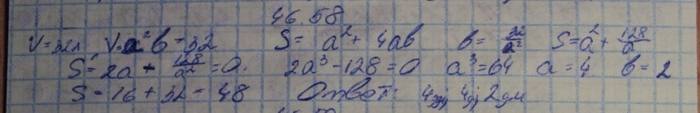 46.58
V=32л V=a²b=32 S=a²+4ab b=32/a² S=a²+128/a
S'=2a-128/a²=0. 2a³-128=0 a³=64 a=4 b=2
S=16+32=48 Ответ: 4дм, 4дм, 2дм